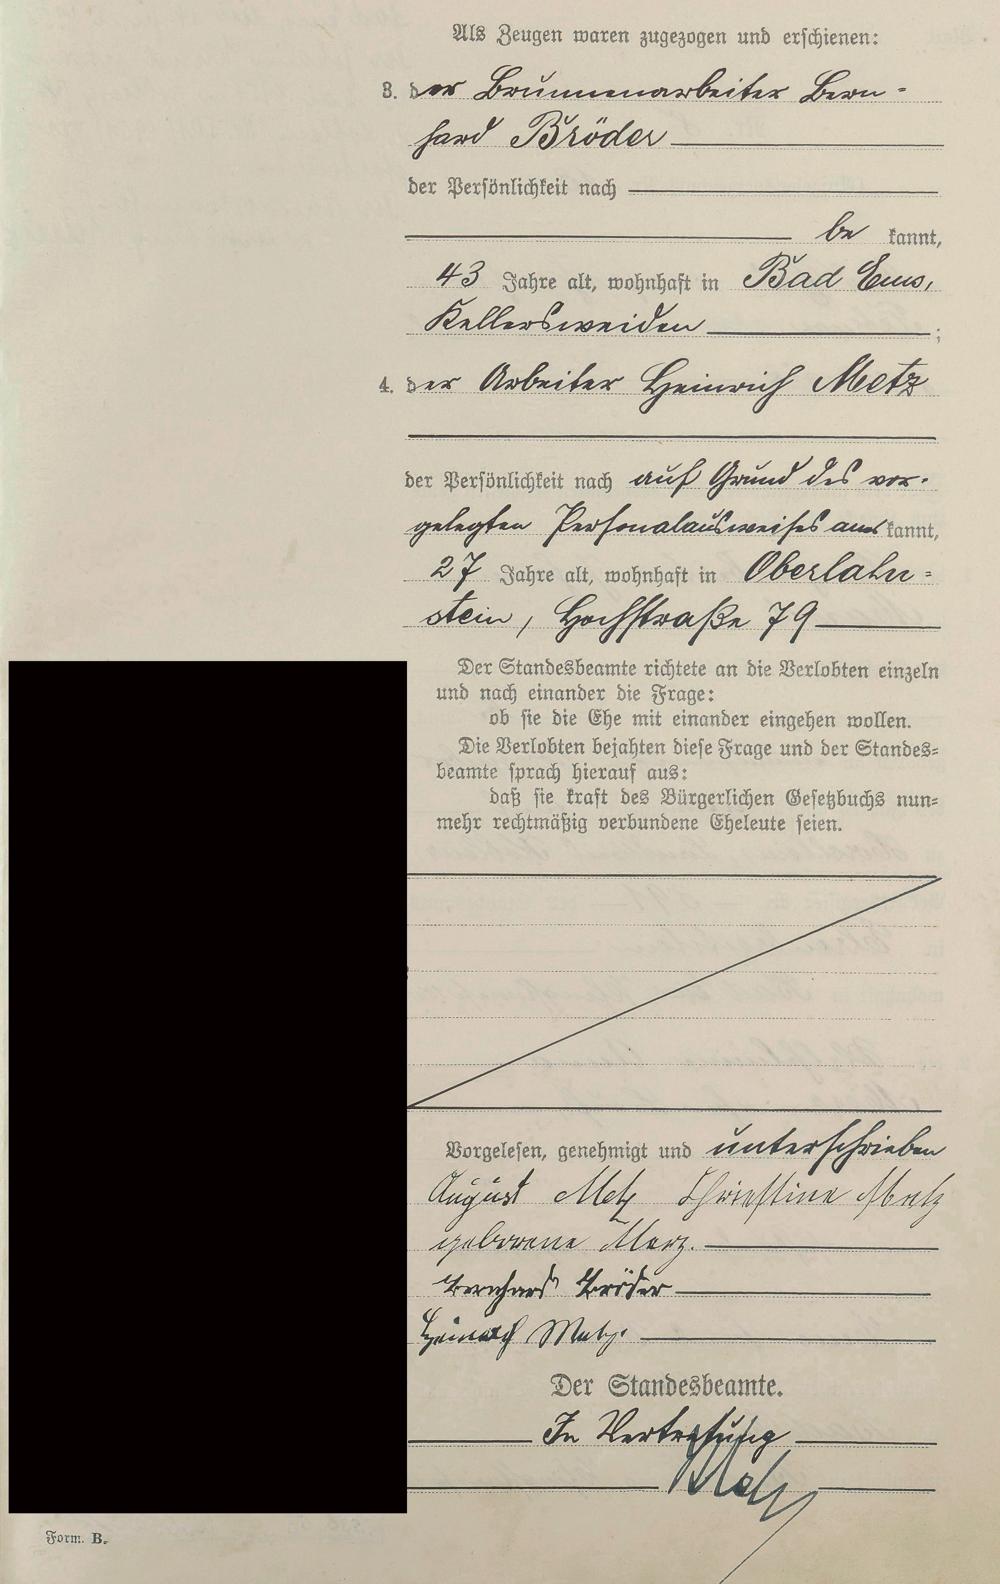 Als Zeugen waren zugezogen und erschienen:
3. der Brunnenarbeiter Bern-
hard Bröder
der Persönlichkeit nach
be kannt,
43 Jahre alt, wohnhaft in Bad Ems,
Kellersweiden
;
4. der Arbeiter Heinrich Metz
der Persönlichkeit nach auf Grund des vor-
gelegten Personalausweises aner kannt,
27 Jahre alt, wohnhaft in Oberlahn-
stein, Hochstraße 79
Der Standesbeamte richtete an die Verlobten einzeln
und nach einander die Frage:
ob sie die Ehe mit einander eingehen wollen.
Die Verlobten bejahten diese Frage und der Standes-
beamte sprach hierauf aus:
daß sie kraft des Bürgerlichen Gesetzbuchs nun-
mehr rechtmäßig verbundene Eheleute seien.
Vorgelesen, genehmigt und unterschrieben
August Metz Christine Metz
geborene Merz.
Bernhard Bröder
Heinrich Metz.
Der Standesbeamte.
In Vertretung
Form. B.